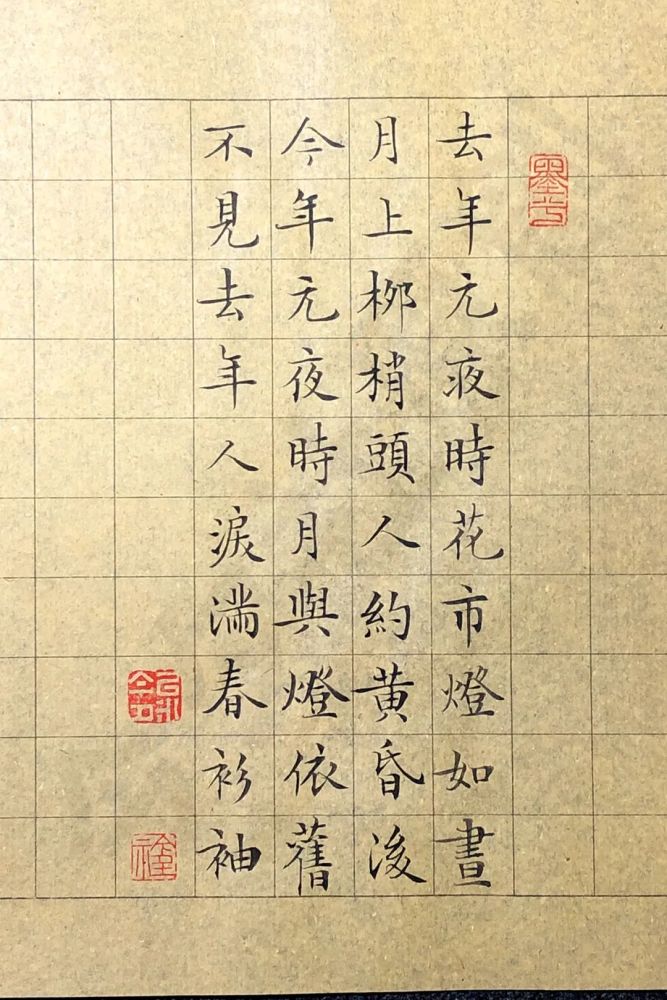 去年元夜時花市燈如晝
月上柳梢頭人約黄昏後
今年元夜時月與燈依舊
不見去年人淚滿春衫袖